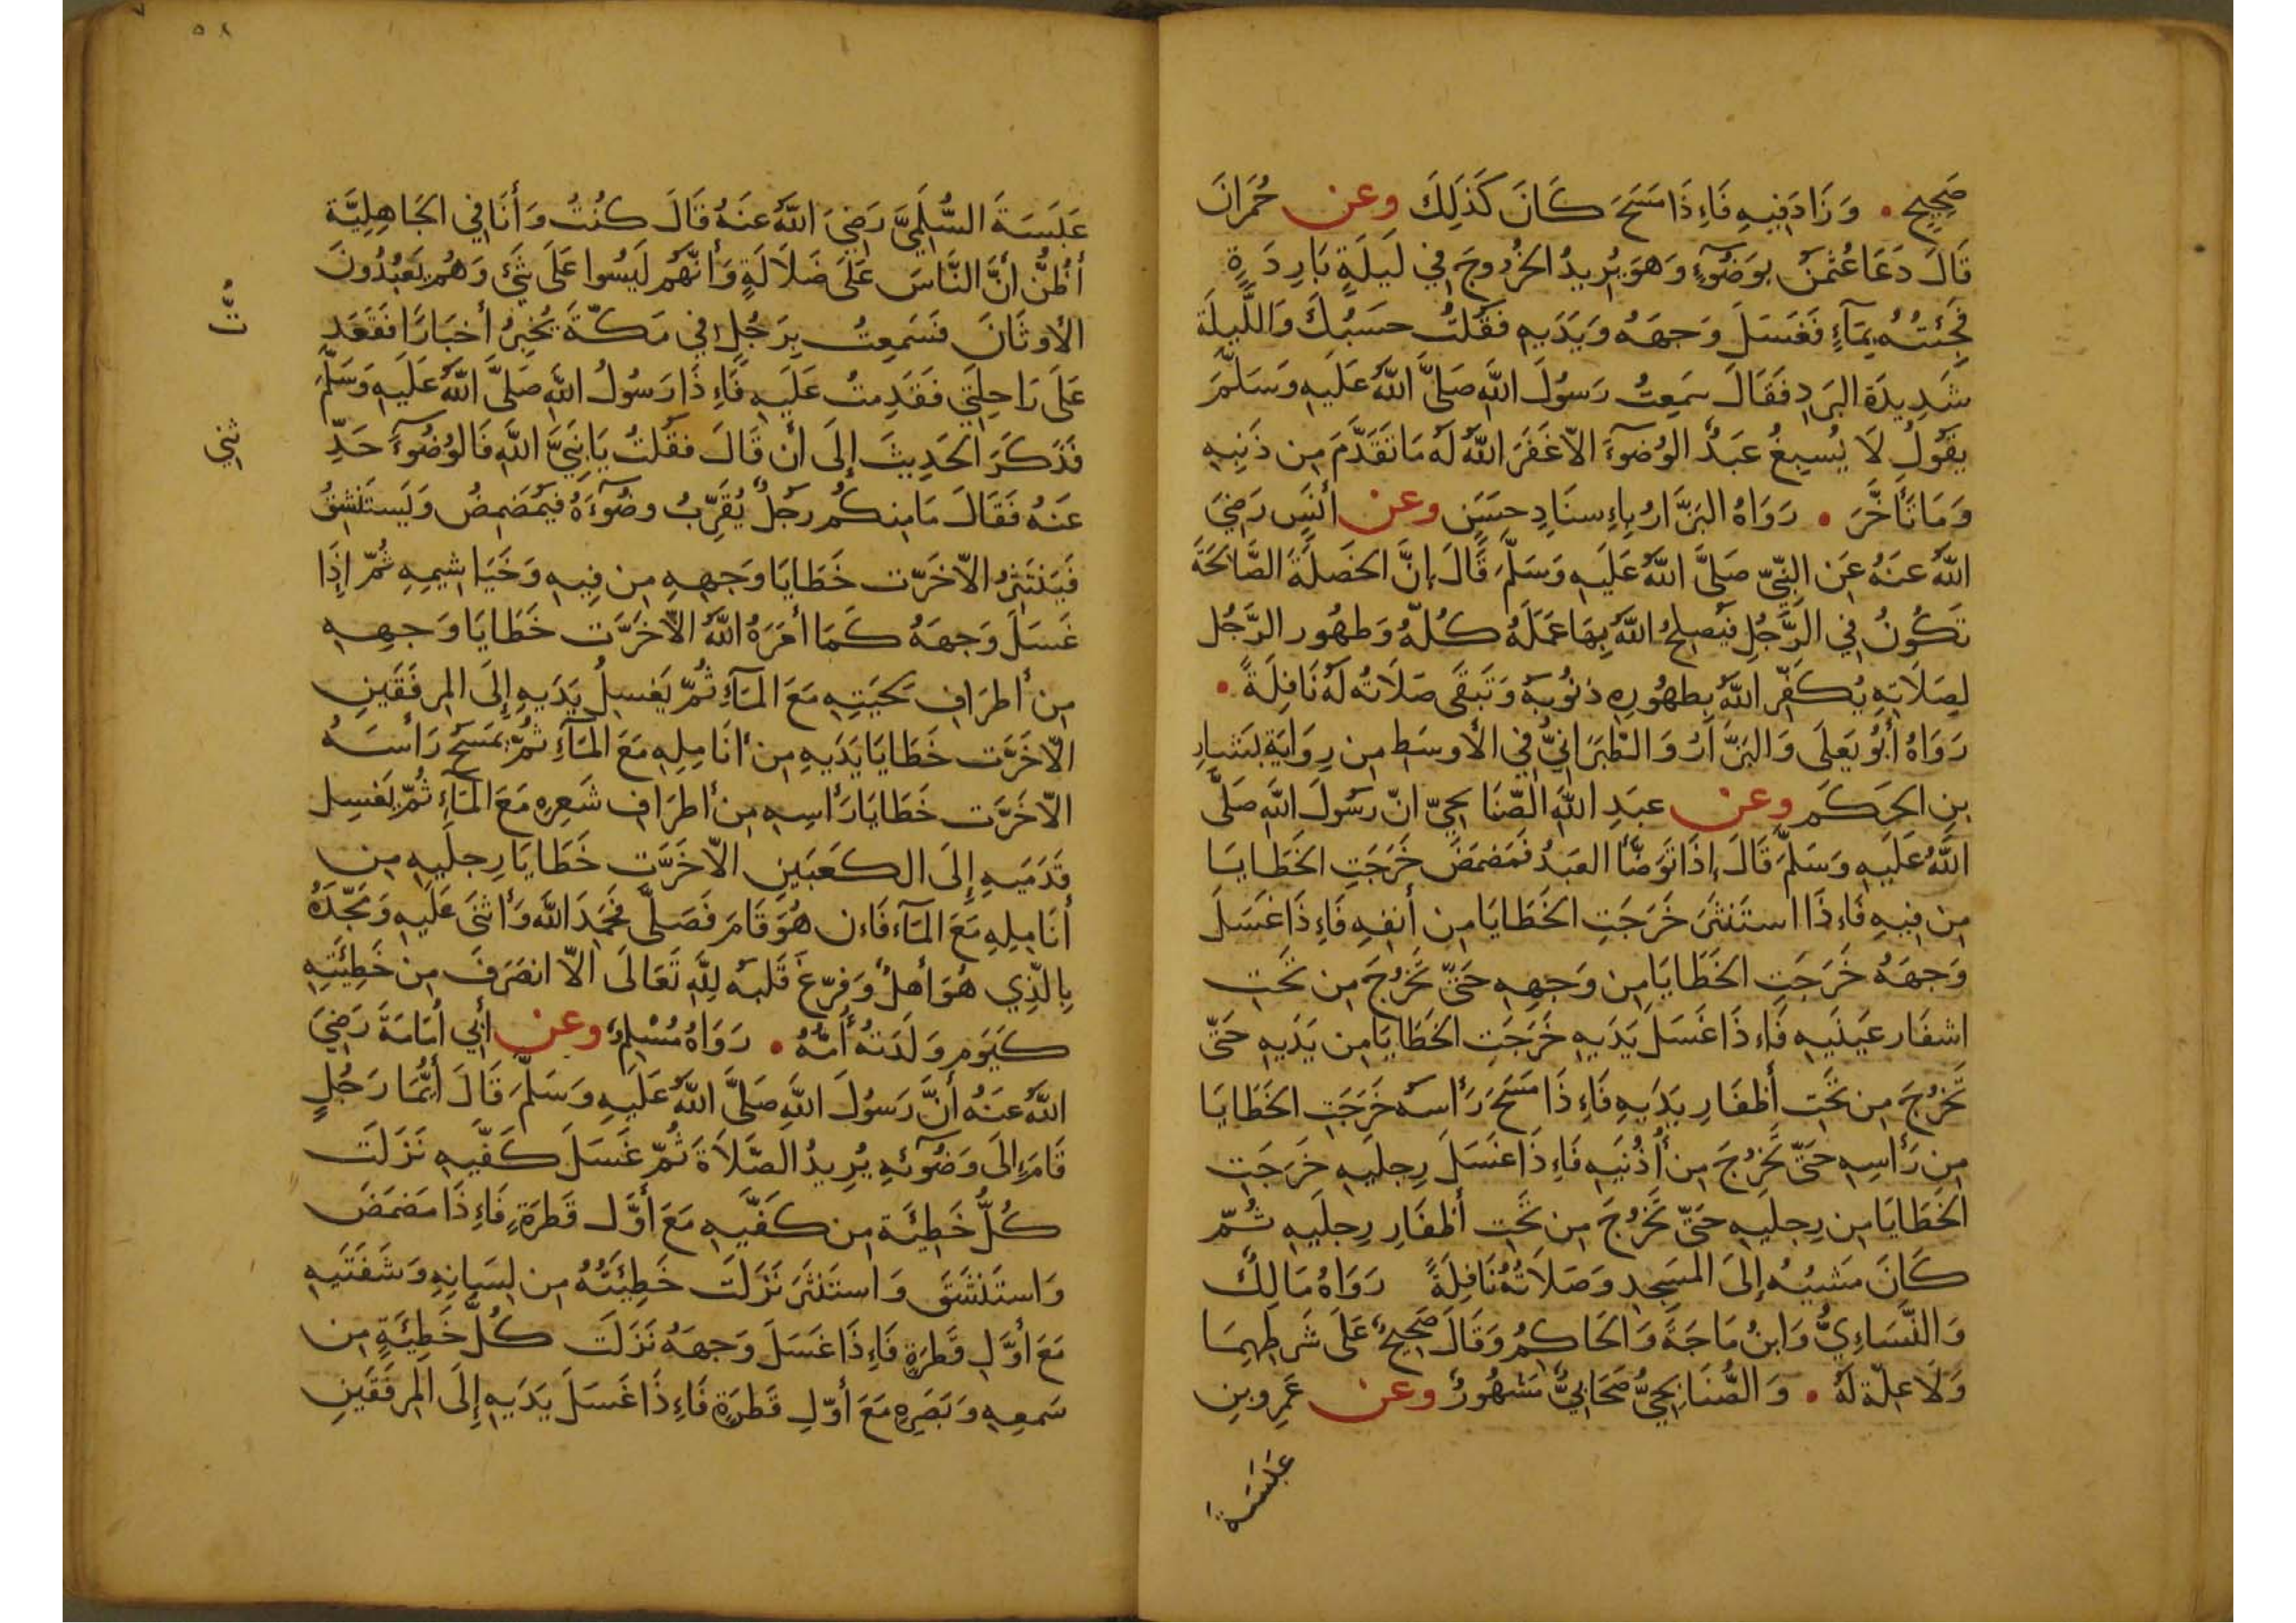 صَحِيحٍ • وَزَادَ فِيهِ فَاءِذَا مَسَحَ كَانَ كَذَلِكَ وعن حُمرَانَ
قَالَ دَعَا عُثمٰنُ بِوَضُوٓءٍ وَهوَ يُرِيدُ الخرُوجَ فِي لَيلَةٍ بَارِدَةٍ
فَجِئتُهُ بِمَآءٍ فَغَسَلَ وَجهَهُ وَيَدَيهِ فقُلتُ حسبُكَ وَاللَّيلَةَ
شَدِيدَة البَرَدِ فَقَالَ سَمِعتُ رَسُولَ اللَّهِ صَلَّى اللَّهُ عَلَيهِ وَسَلَّمَ
يقُولُ لَا يُسبِغُ عَبدٌ الوُضوٓءَ الاّ غَفَرَ اللَّهُ لَهُ مَا تَقَدَّمَ مِن ذَنبِهِ
وَمَا تَأخَّرَ • رَوَاهُ البَزَّارُ بِاءِسنَادٍ حسَنٍ وعن أنَسٍ رَضِيَ
اللَّهُ عَنهُ عَنِ النَّبِيّ صَلَّى اللَّهُ عَلَيهِ وَسَلَّمَ قَالَ إِنَّ الخَصلَةَ الصَّالحَةَ
تَكُونُ فِي الرَّجُلِ فيُصلِحُ اللَّهُ بِهَا عَمَلَهُ كُلّهُ وَطهُور الرَّجُل
لِصَلَاتِهِ يُكَفِّر اللَّهُ بِطهُورِهِ ذنُوبهُ وَتَبقَى صَلَاتُه لَهُ نَافِلَةً •
رَوَاهُ أَبُو يَعلَى وَالبَزَّارُ وَالطّبَرَانِيُّ فِي الأوسَطِ مِن رِوَايَة بَشَّارِ
بنِ الحَكَمِ وعن عبَدِ اللَّهِ الصّنَابحِيّ انّ رسُولَ اللَّهِ صَلَّى
اللَّهُ عَلَيهِ وَسَلَّمَ قَالَ إذَا تَوَضَّأ العَبدُ فمَضمَضَ خَرَجَتِ الخَطَايَا
مِن فِيهِ فَاءِذَا استَنثَرَ خَرَجَتِ الخَطَايَا مِن أنفِهِ فَاءِذَا غَسَلَ
وَجهَهُ خَرَجَتِ الخَطَايَا مِن وَجهِهِ حَتَّى تَخرُجَ مِن تَحَتِ
اشفَار عَينَيهِ فَاءِذَا غَسَلَ يَدَيهِ خَرَجَتِ الخَطَايَا مِن يَدَيهِ حَتّى
تَخرُجَ مِن تَحَتِ أظفَارِ يَدَيهِ فَاءِذَا مَسَحَ رَأسهُ خَرَجَتِ الخَطَايَا
مِن رَأسِهِ حَتّى تَخرُجَ مِن أُذُنَيهِ فَاءِذَا غَسَلَ رِجلَيهِ خَرَجَتِ
الخَطَايَا مِن رِجلَيهِ حَتّى تَخرُجَ مِن تَحَتِ أظفَارِ رِجلَيهِ ثُمّ
كَانَ مَشيُهُ إلَى المَسجِدِ وَصَلَاتُهُ نَافِلَةً رَوَاهُ مَالِكٌ
وَالنَّسَاءِيُّ وَابنُ مَاجَةَ وَالحَاكِمُ وَقَالَ صَحِيحٌ عَلَى شَرطِهِمَا
وَلَا عِلّة لَهُ • وَالصُّنَابِحِيُّ صَحَابِيٌّ مَشهُورٌ وعن عَمرِو بنِ
عَبَسَةَ
٥٨
عَبَسَةَ السُّلَمِيَّ رَضِيَ اللَّهُ عنَهُ قَالَ كُنتُ وَأَنَا فِي الجَاهِلِيَّة
أظُنُّ أنَّ النَّاسَ عَلَى ضَلَالَةٍ وَأنّهُم لَيسُوا عَلَى شَيْءٍ وَهُم يَعبُدُونَ
الأوثَانَ فسَمِعتُ بِرَجُلٍ فِي مَكّةَ يُخبِرُ أخبَارًا فَقَعَدتُّ
عَلَى رَاحِلَتِي فقَدِمتُ عَلَيهِ فَاءِذَا رَسُولُ اللَّهِ صَلَّى اللَّهُ عَلَيهِ وَسَلَّمَ
فَذَكَرَ الحَدِيثَ إلَى أن قَالَ فقُلتُ يَا نَبِيَّ اللَّهِ فَالوُضُوٓءَ حَدِّثنِي
عَنهُ فَقَالَ مَا مِنكُم رجُلٌ يُقَرِّبُ وضُوٓءَهُ فيُمَضمِضُ وَيَستَنشِقُ
فَيَنتَثِرُ الاّ خَرّت خَطَايَا وَجهِهِ مِن فِيهِ وَخَيَاشِيمِهِ ثُمّ إذَا
غَسَلَ وَجهَهُ كَمَا أمَرَهُ اللَّهُ الاّ خَرَّت خَطَايَا وَجهِهِ
مِن أطرَافِ لحَيَتِهِ مَعَ المَآءِ ثُمّ يَغسِلُ يَدَيهِ إِلَى المِرفَقَينِ
الاّ خَرَّت خَطَايَا يَدَيهِ مِن أنَامِلِهِ مَعَ المَآءِ ثُمّ يَمسَحُ رَأسَهُ
الاّ خَرَّت خَطَايَا رَأسِهِ مِن أطرَافِ شَعرِهِ مَعَ المَآءِ ثُمّ يَغسِل
قَدَمَيهِ إلَى الكَعبَينِ الاّ خَرَّت خَطَايَا رِجلَيهِ مِن
أنَامِلِهِ مَعَ المَآء فَاءن هُوَ قَامَ فَصَلَّى فحَمِدَ اللَّهَ وَأثنَى عَلَيهِ وَمَجّدَهُ
بِالَّذِي هُوَ أهلٌ وَفرّغَ قَلبَه لِلَّهِ تَعَالَى الاّ انصَرَفَ مِن خَطِيئَتِهِ
كَيَومِ وَلَدَتهُ أُمّهُ • رَوَاهُ مُسْلِمٌ وعن أَبِي أمَامَةَ رَضِيَ
اللَّهُ عَنهُ أنَّ رَسُولَ اللَّهِ صَلَّى اللَّهُ عَلَيهِ وَسَلَّمَ قَالَ أيُّمَا رَجُلٍ
قَامَ إلَى وَضُوٓئِهِ يُرِيدُ الصَّلَاةَ ثُمّ غَسَلَ كَفَّيهِ نَزَلَت
كُلُّ خَطِيئَة مِن كَفَّيهِ مَعَ أوَّل قَطرَةٍ فَاءِذَا مَضمَضَ
وَاستَنشَقَ وَاستَنثَرَ نَزَلَت خَطِيئَتُهُ مِن لِسَانِهِ وَشَفَتَيهِ
مَعَ أوَّلِ قَطرَةٍ فَاءِذَا غَسَلَ وَجهَهُ نَزَلَت كُلُّ خَطِيئَةٍ مِن
سَمعِهِ وَبَصَرِهِ مَعَ أوّلِ قَطرَةٍ فَاءِذَا غَسَلَ يَدَيهِ إلَى المِرفَقَينِ